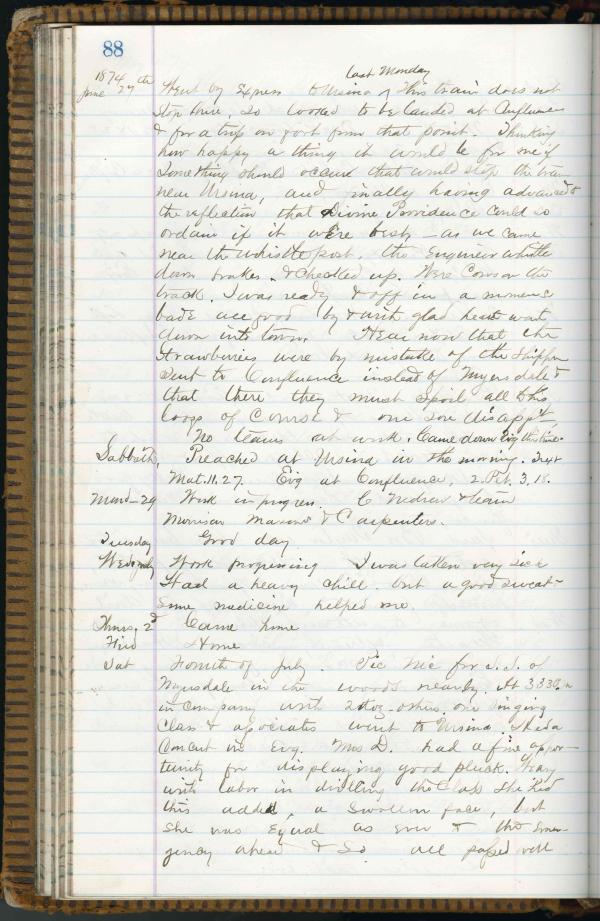 88
1874 last Monday
June 27th Went by Express to Ursina, This train does not
stop there, so looked to be landed at Confluence
& for a trip on foot from that point. Thinking
how happy a thing it would be for me if
something should occur that would stop the train
near Ursina, and finally having advanced to
the reflection that Divine Providence could so
ordain if it were best, - as we came
near the whistle post, the Engineer whistled
down brakes. & checked up. Were Cows on the
track. I was ready & off in a moment
bade all good by & with glad heart went
down into town. Hear now that the
Strawberries were by mistake of the Shipper
Sent to Confluence instead of Myersdale &
that there they must spoil all to
loss of Course & our sore disappt
No teams at work. Came down this time.
Sabbath, Preached at Ursina in the morning. Text
Mat. 11.27. Evg at Confluence, 2. Pet. 3. 18.
Mond- 29 Work in progress. C & team
Morrison Masons & Carpenters.
Tuesday Good day
Wednesday July Work progressing I was taken very sick
Had a heavy chill, but a good sweat-
Some medicine helped me.
Thurs. 2d Came home
Frid Home
Sat Fourth of July. Pic Nic for S.S. of
Myersdale in the woods nearby. At 3.30 Pm
in company with 2 doz. others, our singing
Class & associates went to Ursina. Held a
Concert in Evg. Mrs D. had a fine oppor-
tunity for displaying good pluck. Weary
with labor in drilling the Class she had
this added, a Swollen face, but
she was Equal as ever to the emer-
gency ahead & So all passed well